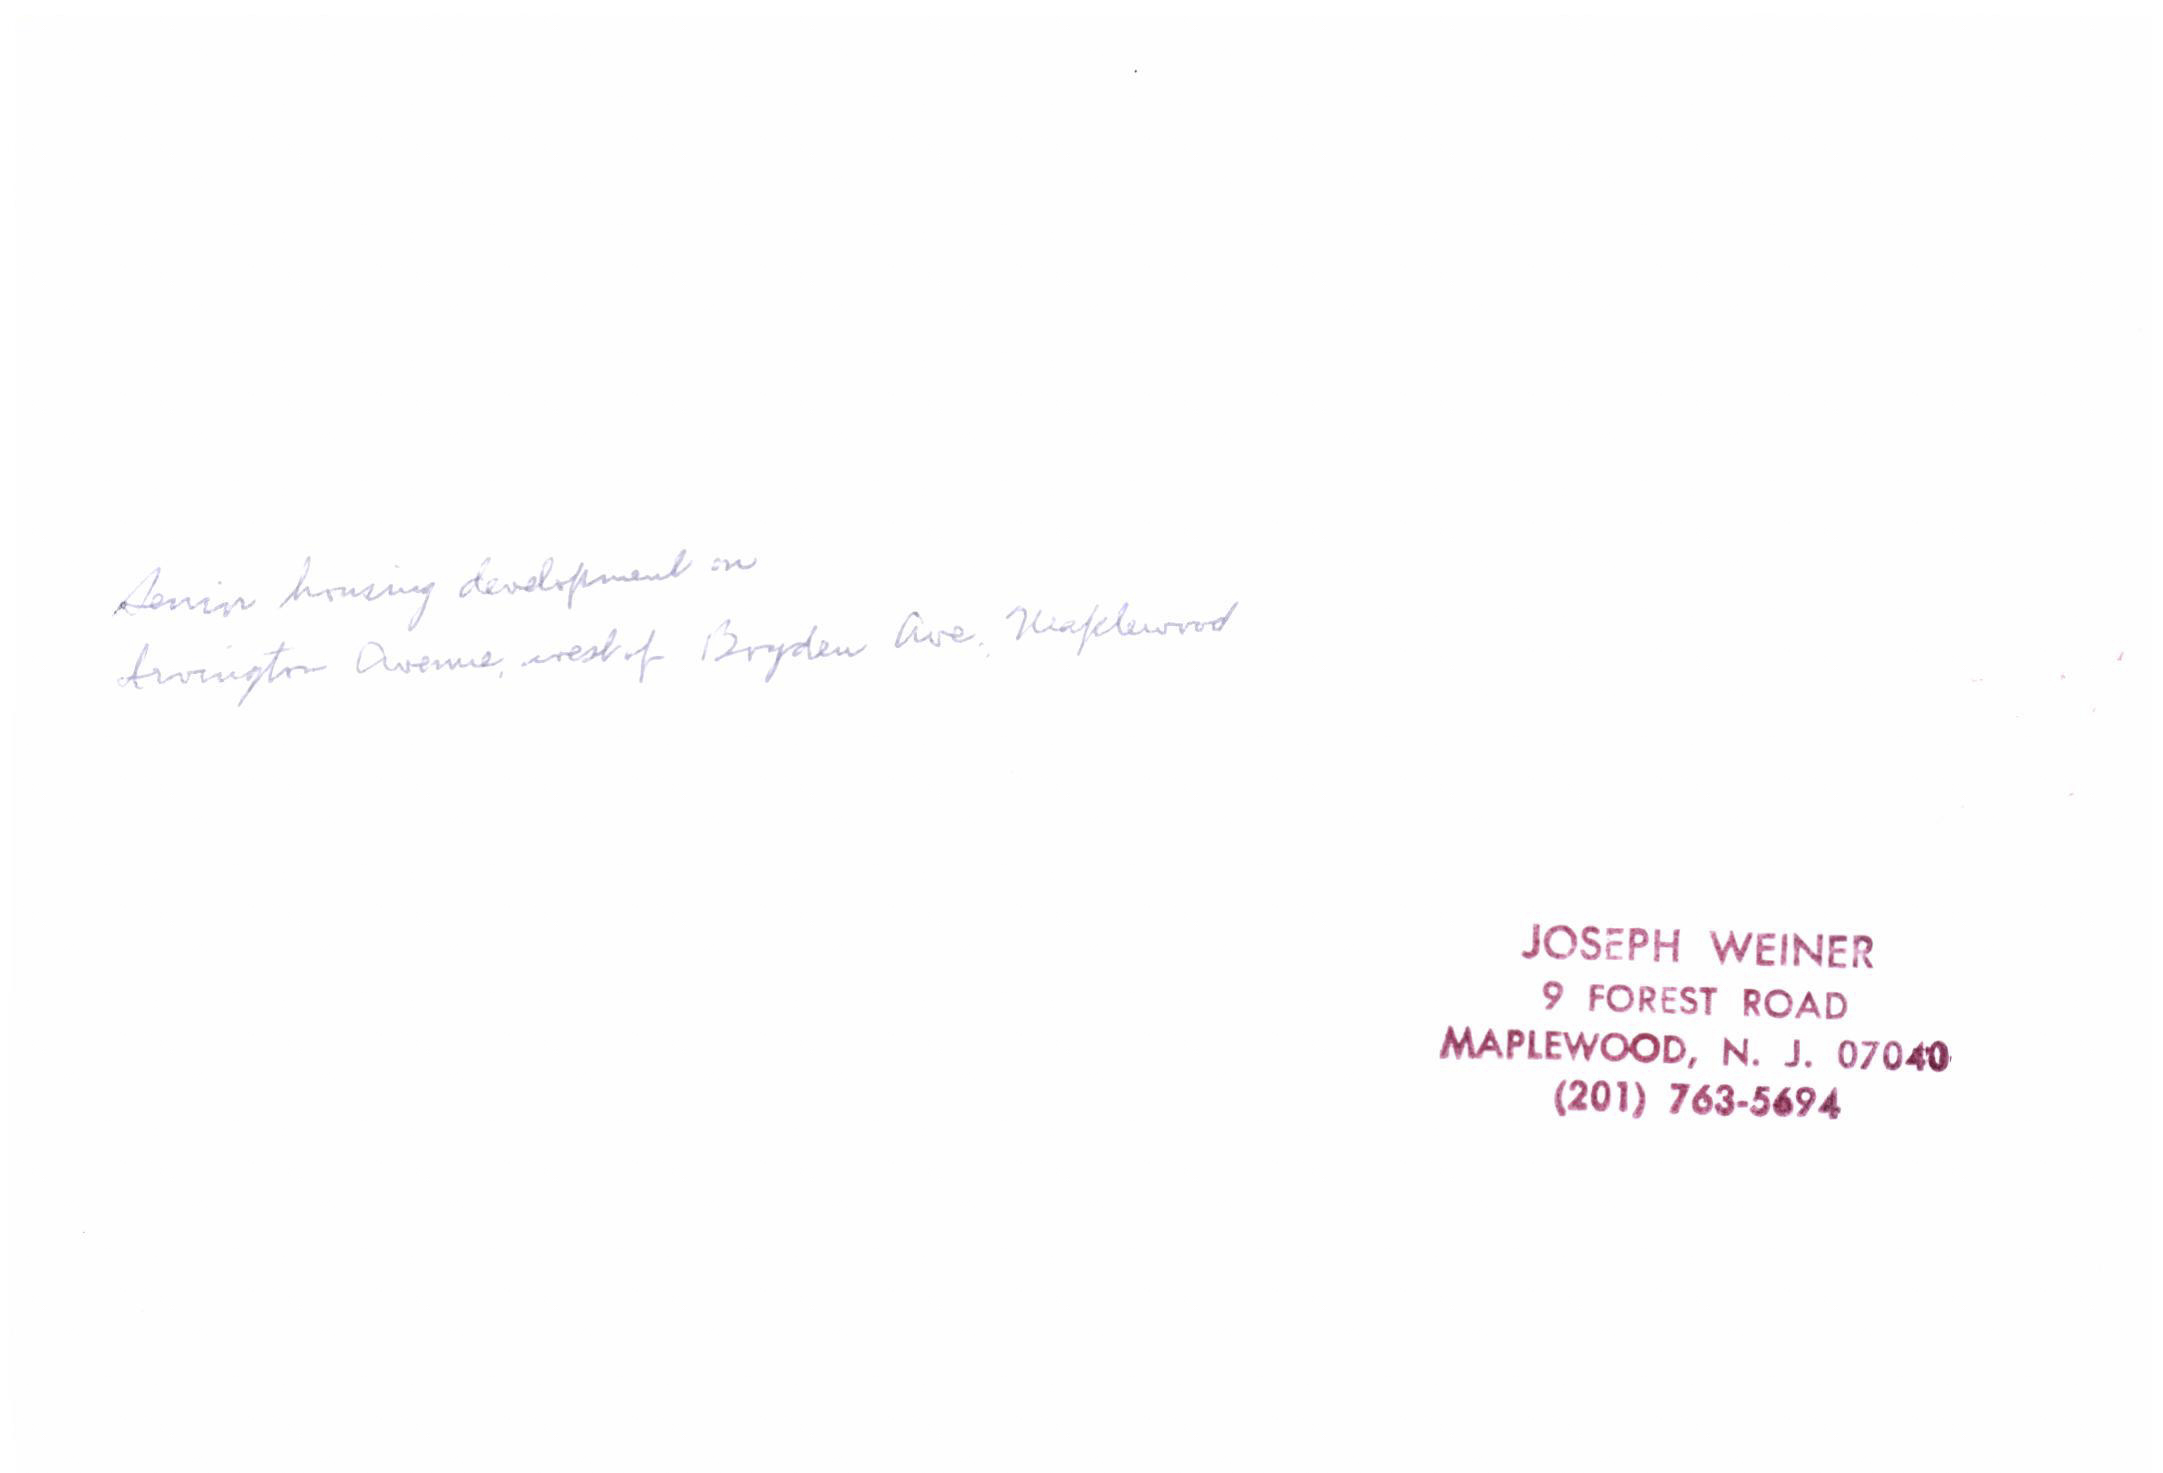 Senior housing development on
Irvington Avenue, west of Boyden Ave., Maplewood
JOSEPH WEINER
9 FOREST ROAD
MAPLEWOOD, N. J. 07040
(201) 763-5694